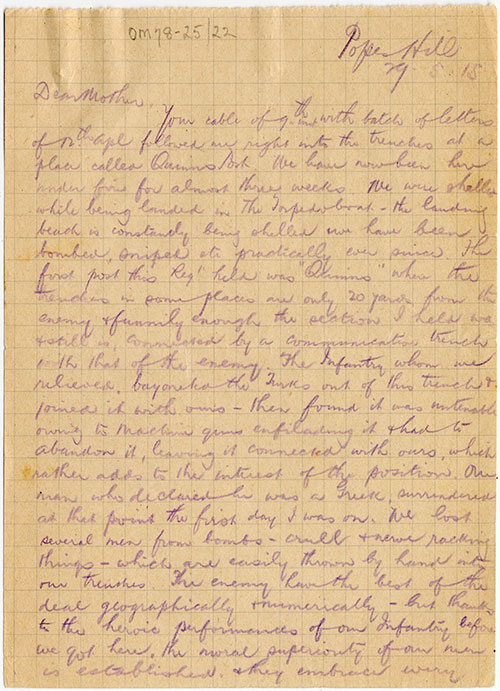 OM78-25/22
Popes Hill
29.5.15
Dear Mother,
Your cable of 9th with batch of letters
of 12th Apl followed me right into the trenches at a
place called Quinns Post. We have now been here
under fire for almost three weeks. We were shelled
while being landed in the Torpedo boat - the landing
beach is constantly being shelled & we have been
bombed, sniped etc practically ever since. The
first post this Regt held was "Quinns" where the
trenches in some places are only 20 yards from the
enemy & funnily enough the section I held was
& still is, connected by a communication trench
with that of the enemy. The Infantry whom we
relieved, bayoneted the Turks out of this trench &
joined it with ours - then found it was untenable
owing to machine guns enfilading it & had to
abandon it, leaving it connected with ours, which
rather adds to the interest of the position. One
man who declared he was a Greek, surrendered
at that point the first day I was on. We lost
several men from bombs - cruel & nerve racking
things - which are easily thrown by hand into
our trenches. The enemy have the best of the
deal geographically & numerically - but thanks
to the heroic performances of our Infantry before
we got here, the moral superiority of our men
is established. & they embrace every